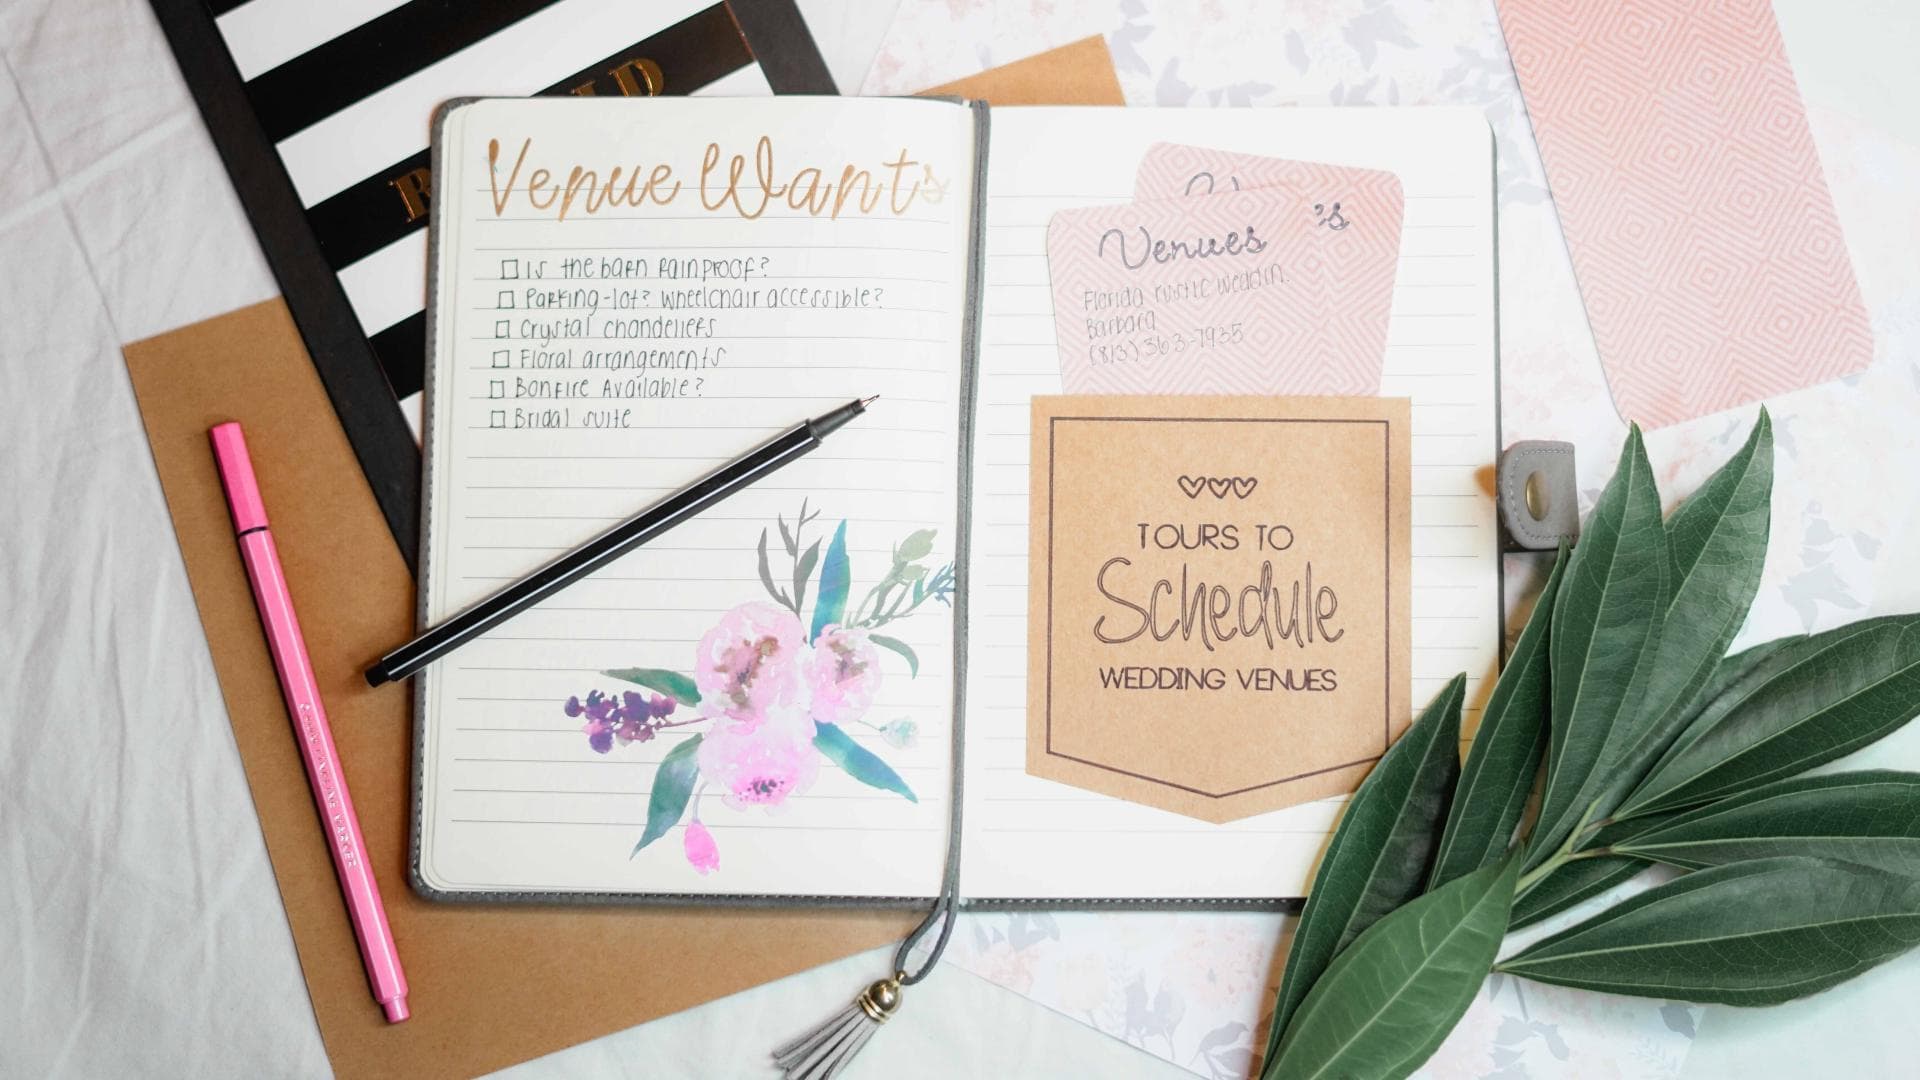 Venue Wants
Is the barn rainproof?
Parking-lot? Wheelchair accessible?
Crystal chandeliers
Floral arrangements
Bonfire Available?
Bridal suite
's
Venues
Florida rustic weddin.
Barbara
(813) 363-7935
TOURS TO
Schedule
WEDDING VENUES